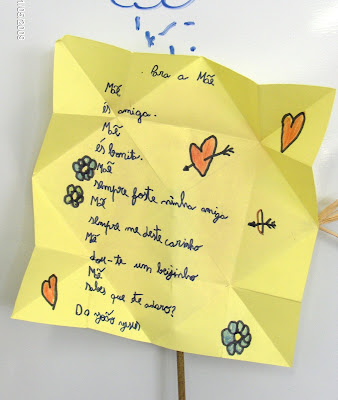 Para a Mãe
Mãe
és amiga.
Mãe
és bonita.
Mãe
sempre foste minha amiga
Mãe
sempre me deste carinho
Mãe
dou-te um beijinho
Mãe
sabes que te adoro?
Do João